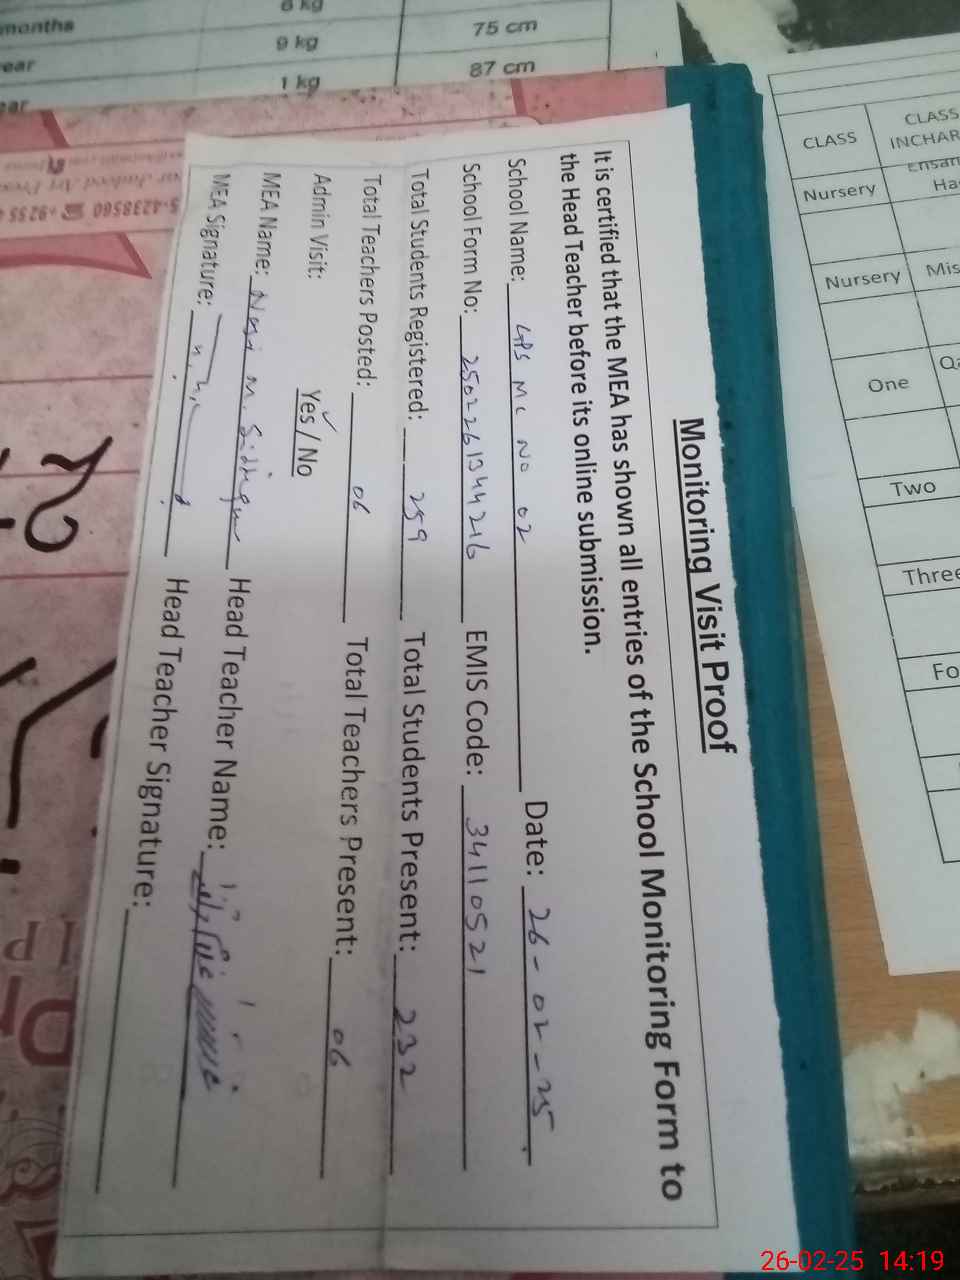 Monitoring Visit Proof
It is certified that the MEA has shown all entries of the School Monitoring Form to
the Head Teacher before its online submission.
School Name: GPS MC NO 02 Date: 26-02-25
School Form No: 2502261344216 EMIS Code: 34110521
Total Students Registered: 259 Total Students Present: 232
Total Teachers Posted: 06 Total Teachers Present: 06
Admin Visit: Yes / No
MEA Name: M. Head Teacher Name:
MEA Signature: Head Teacher Signature:
months 8 kg 75 cm
year 9 kg 87 cm
1 kg
CLASS CLASS
INCHAR
Nursery Ha
Nursery Mis
One Qa
Two
Three
Fo
26-02-25 14:19